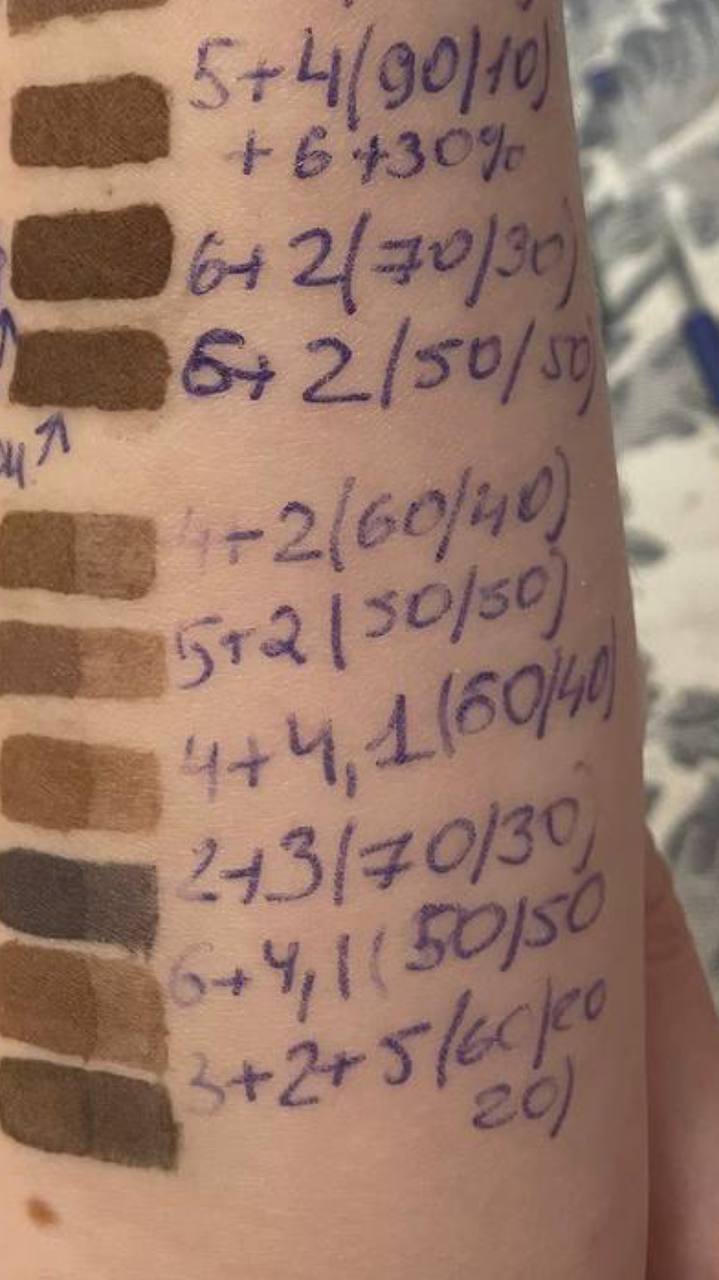 5+4(90/10)
+6+30%
6+2(70/30)
6+2(50/50)
4+2(60/40)
5+2(50/50)
4+4,1(60/40)
2+3(70/30)
6+4,1(50/50
3+2+5(60/20
20)